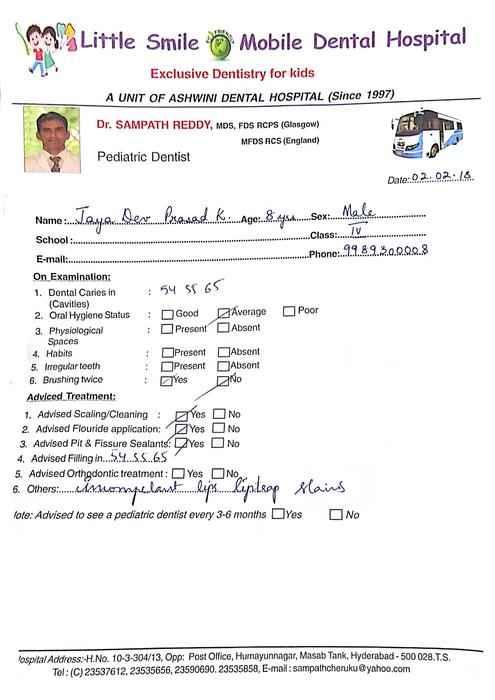 Little Smile ECO FRIENDLY Mobile Dental Hospital
Exclusive Dentistry for kids
A UNIT OF ASHWINI DENTAL HOSPITAL (Since 1997)
Dr. SAMPATH REDDY, MDS, FDS RCPS (Glasgow)
MFDS RCS (England)
Pediatric Dentist
Date: 02.02.18
Name: Jaya Dev Prasad K. Age: 8 yrs Sex: Male
School: Class: IV
E-mail: Phone: 9989300008
On Examination:
1. Dental Caries in : 54 55 65
(Cavities)
2. Oral Hygiene Status : Good Average Poor
3. Physiological : Present Absent
Spaces
4. Habits : Present Absent
5. Irregular teeth : Present Absent
6. Brushing twice : Yes No
Adviced Treatment:
1. Advised Scaling/Cleaning : Yes No
2. Advised Flouride application: Yes No
3. Advised Pit & Fissure Sealants: Yes No
4. Advised Filling in 54 55 65
5. Advised Orthodontic treatment : Yes No
6. Others: lips stains
lote: Advised to see a pediatric dentist every 3-6 months Yes No
lospital Address:-H.No. 10-3-304/13, Opp: Post Office, Humayunnagar, Masab Tank, Hyderabad - 500 028.T.S.
Tel : (C) 23537612, 23535656, 23590690. 23535858, E-mail : sampathcheruku@yahoo.com